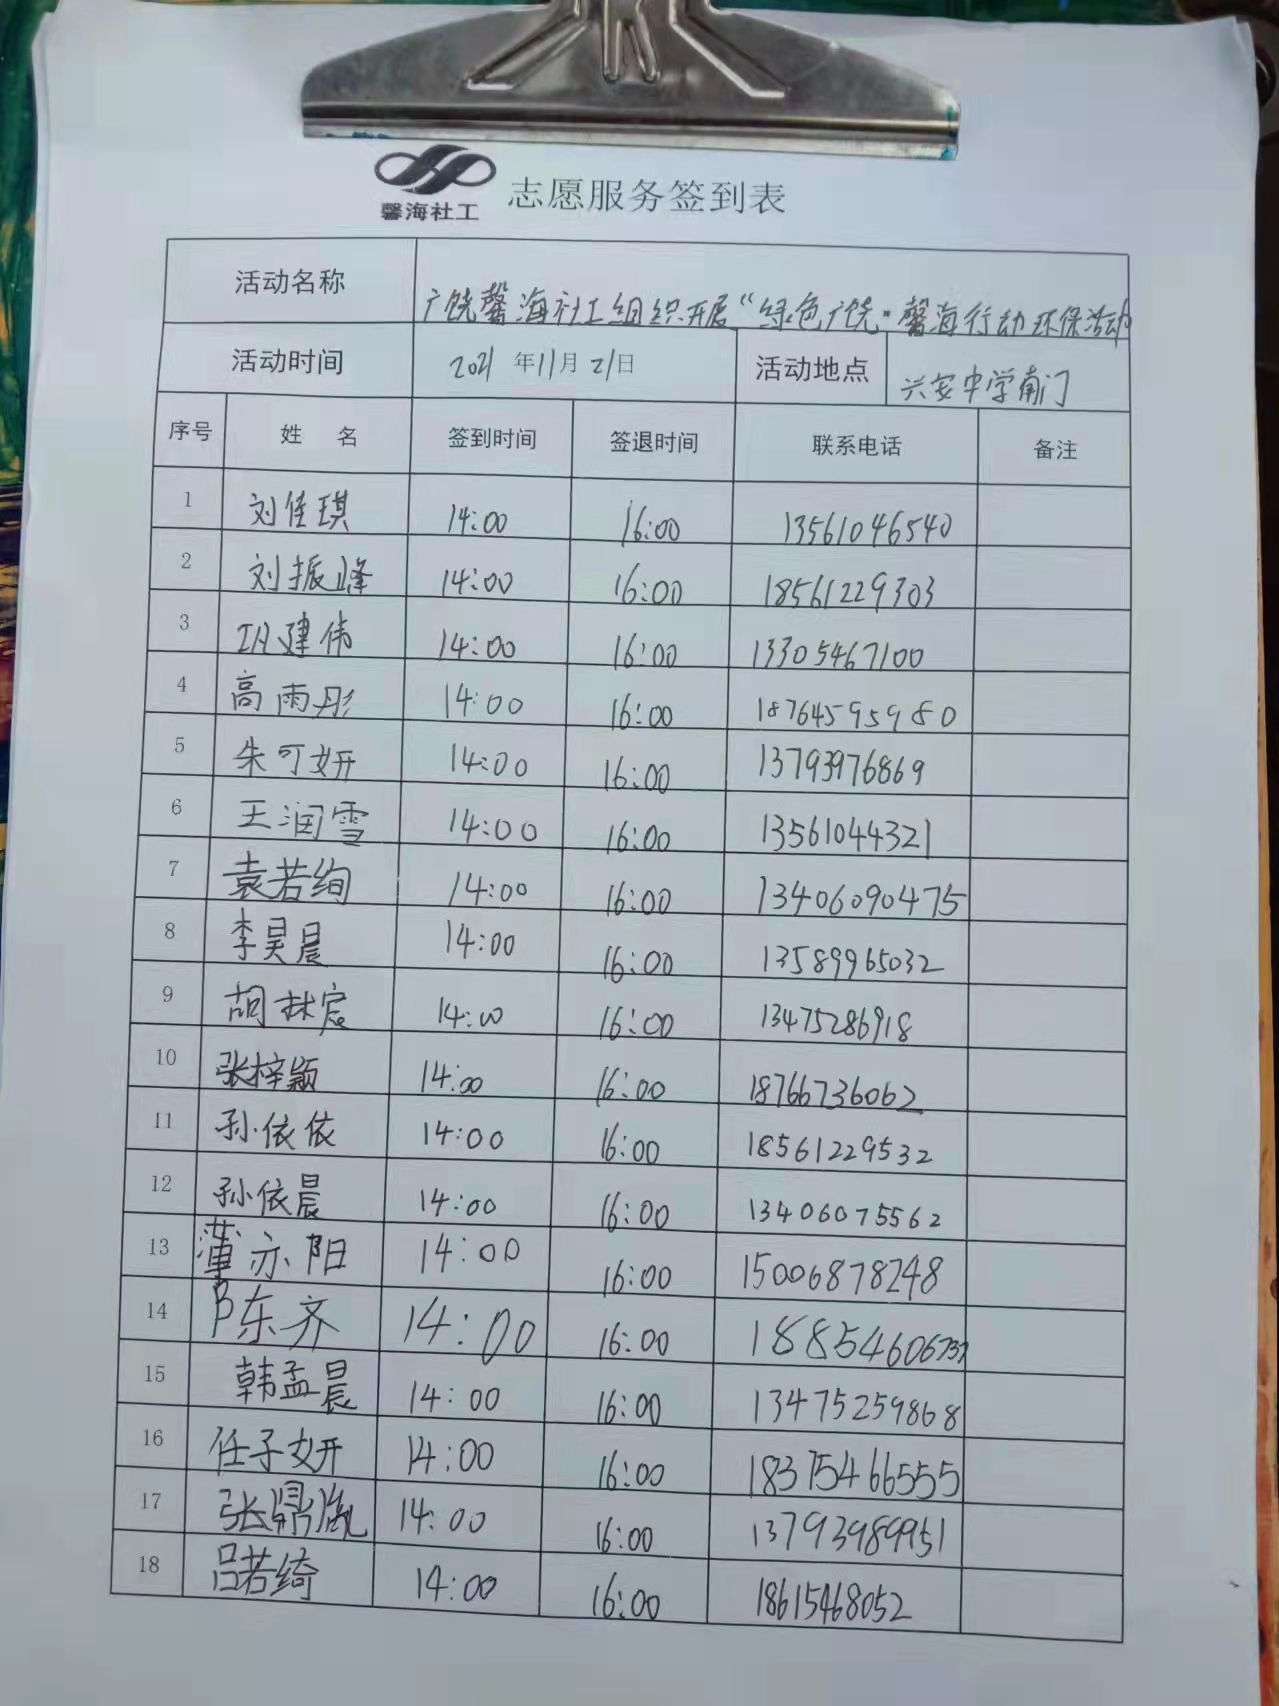 馨海社工
志愿服务签到表
活动名称 广饶馨海社工组织开展“绿色广饶·馨海行动环保活动
活动时间 2021年11月21日 活动地点 兴安中学南门
序号 姓 名 签到时间 签退时间 联系电话 备注
1 刘佳琪 14:00 16:00 13561046540
2 刘振峰 14:00 16:00 18561229303
3 巩建伟 14:00 16:00 13305467100
4 高雨彤 14:00 16:00 18764595980
5 朱可妍 14:00 16:00 13793976869
6 王润雪 14:00 16:00 13561044321
7 袁若绚 14:00 16:00 13406090475
8 李昊晨 14:00 16:00 13589965032
9 胡林宸 14:00 16:00 13475286918
10 张梓颖 14:00 16:00 18766736062
11 孙依依 14:00 16:00 18561229532
12 孙依晨 14:00 16:00 13406075562
13 薄亦阳 14:00 16:00 15006878248
14 陈齐 14:00 16:00
15 韩孟晨 14:00 16:00 13475259868
16 任子妍 14:00 16:00 18375466555
17 张鼎胤 14:00 16:00 13793989951
18 吕若绮 14:00 16:00 18615468052